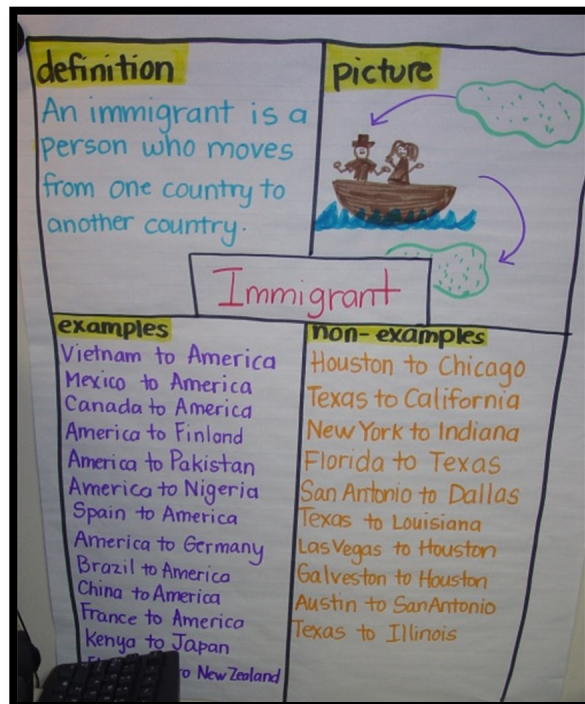 definition
An immigrant is a
person who moves
from one country to
another country.
picture
Immigrant
examples
Vietnam to America
Mexico to America
Canada to America
America to Finland
America to Pakistan
America to Nigeria
Spain to America
America to Germany
Brazil to America
China to America
France to America
Kenya to Japan
to New Zealand
non-examples
Houston to Chicago
Texas to California
New York to Indiana
Florida to Texas
San Antonio to Dallas
Texas to Louisiana
Las Vegas to Houston
Galveston to Houston
Austin to San Antonio
Texas to Illinois